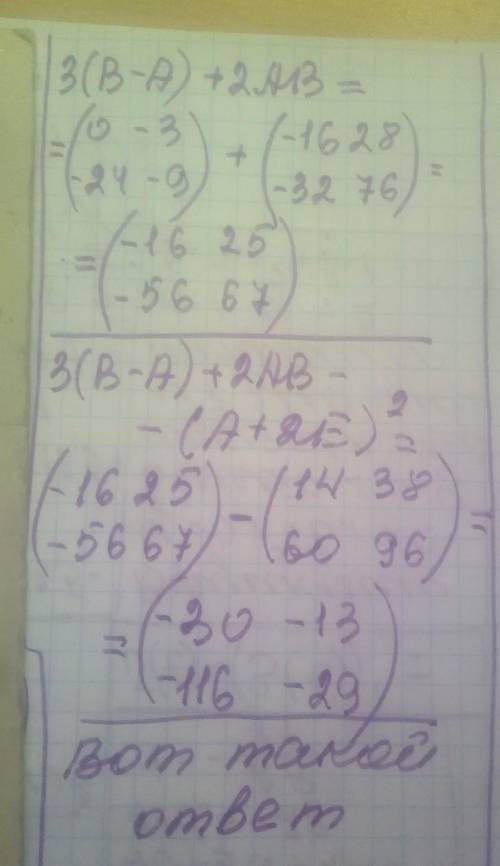 3(B-A)+2AB=
=(0 -3) + (-16 28) =
(-24 -9) (-32 76)
=(-16 25)
(-56 67)
3(B-A)+2AB-
-(A+2E)²=
(-16 25) - (14 38) =
(-56 67) (60 96)
=(-30 -13)
(-116 -29)
Вот такой
ответ